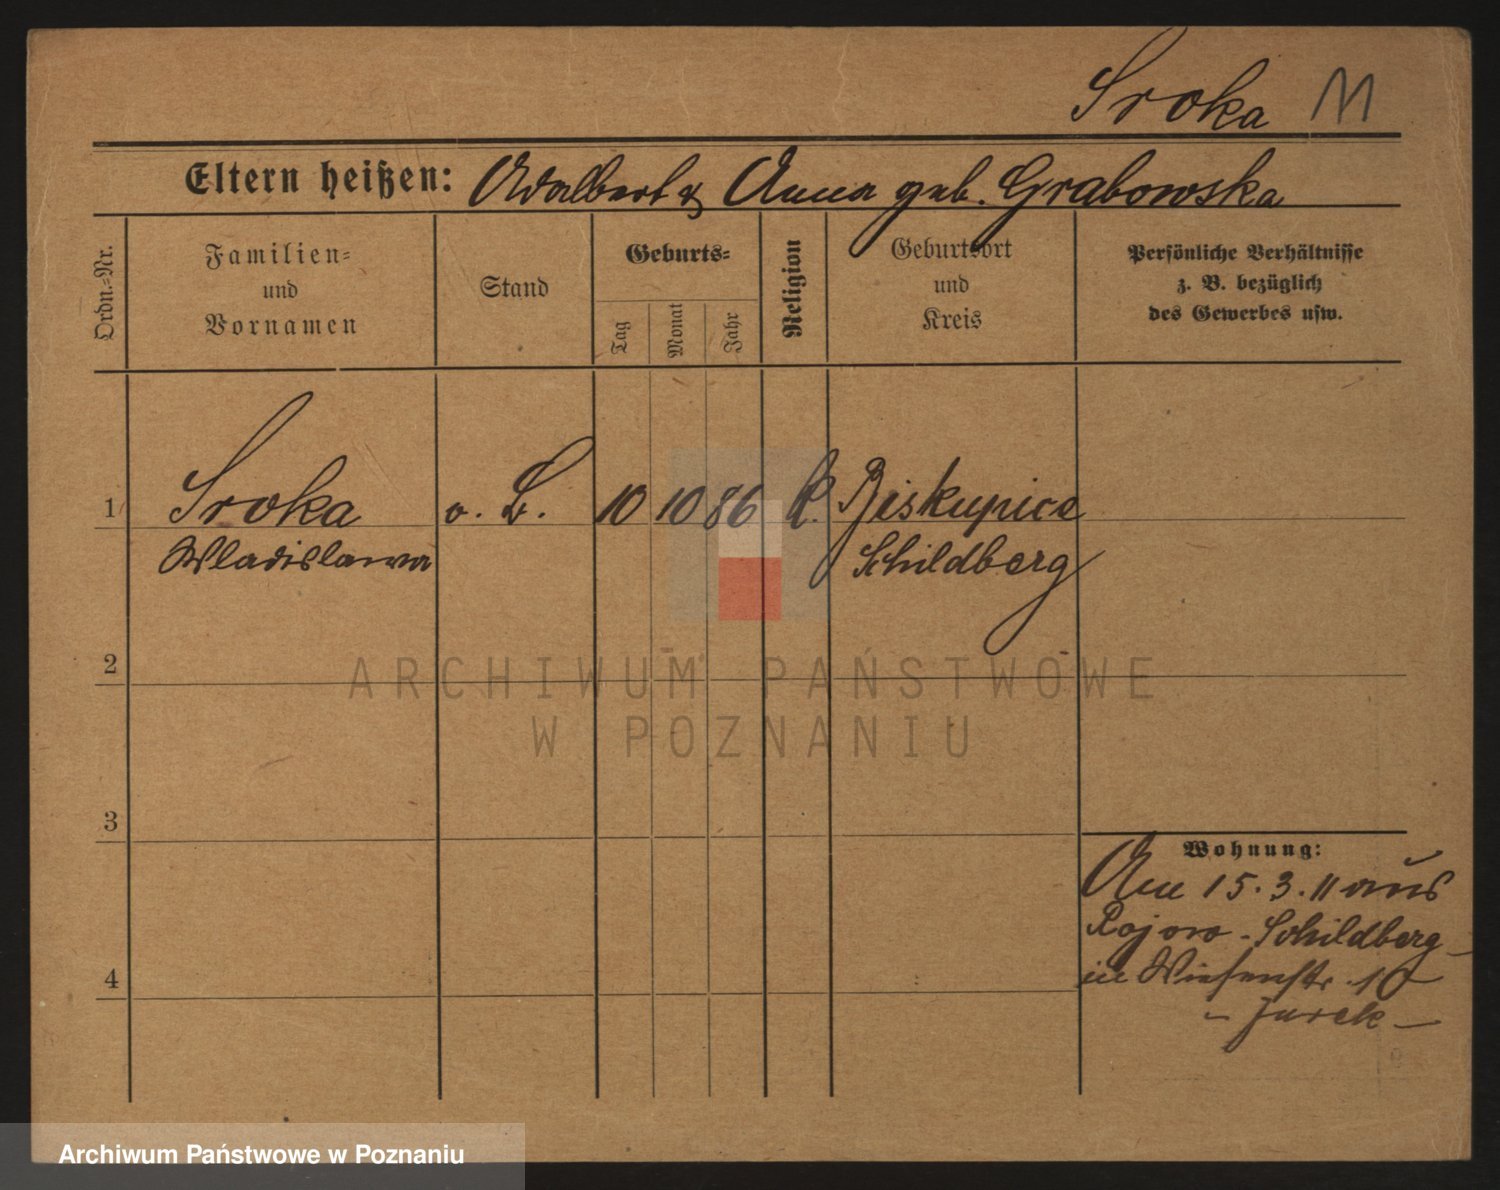 Sroka 11
Eltern heißen: Adalbert & Anna geb. Grabowska
Ordn.-Nr.
Familien-
und
Vornamen
Stand
Geburts-
Tag
Monat
Jahr
Religion
Geburtsort
und
Kreis
Persönliche Verhältnisse
z. B. bezüglich
des Gewerbes usw.
1 Sroka o. B. 10 10 86 k. Biskupice
Wladislawa Schildberg
2
3
Wohnung:
Am 15.3.11 aus
Rojow - Schildberg
in Wiesenstr. 10
- Jurek -
4
ARCHIWUM PAŃSTWOWE
W POZNANIU
Archiwum Państwowe w Poznaniu